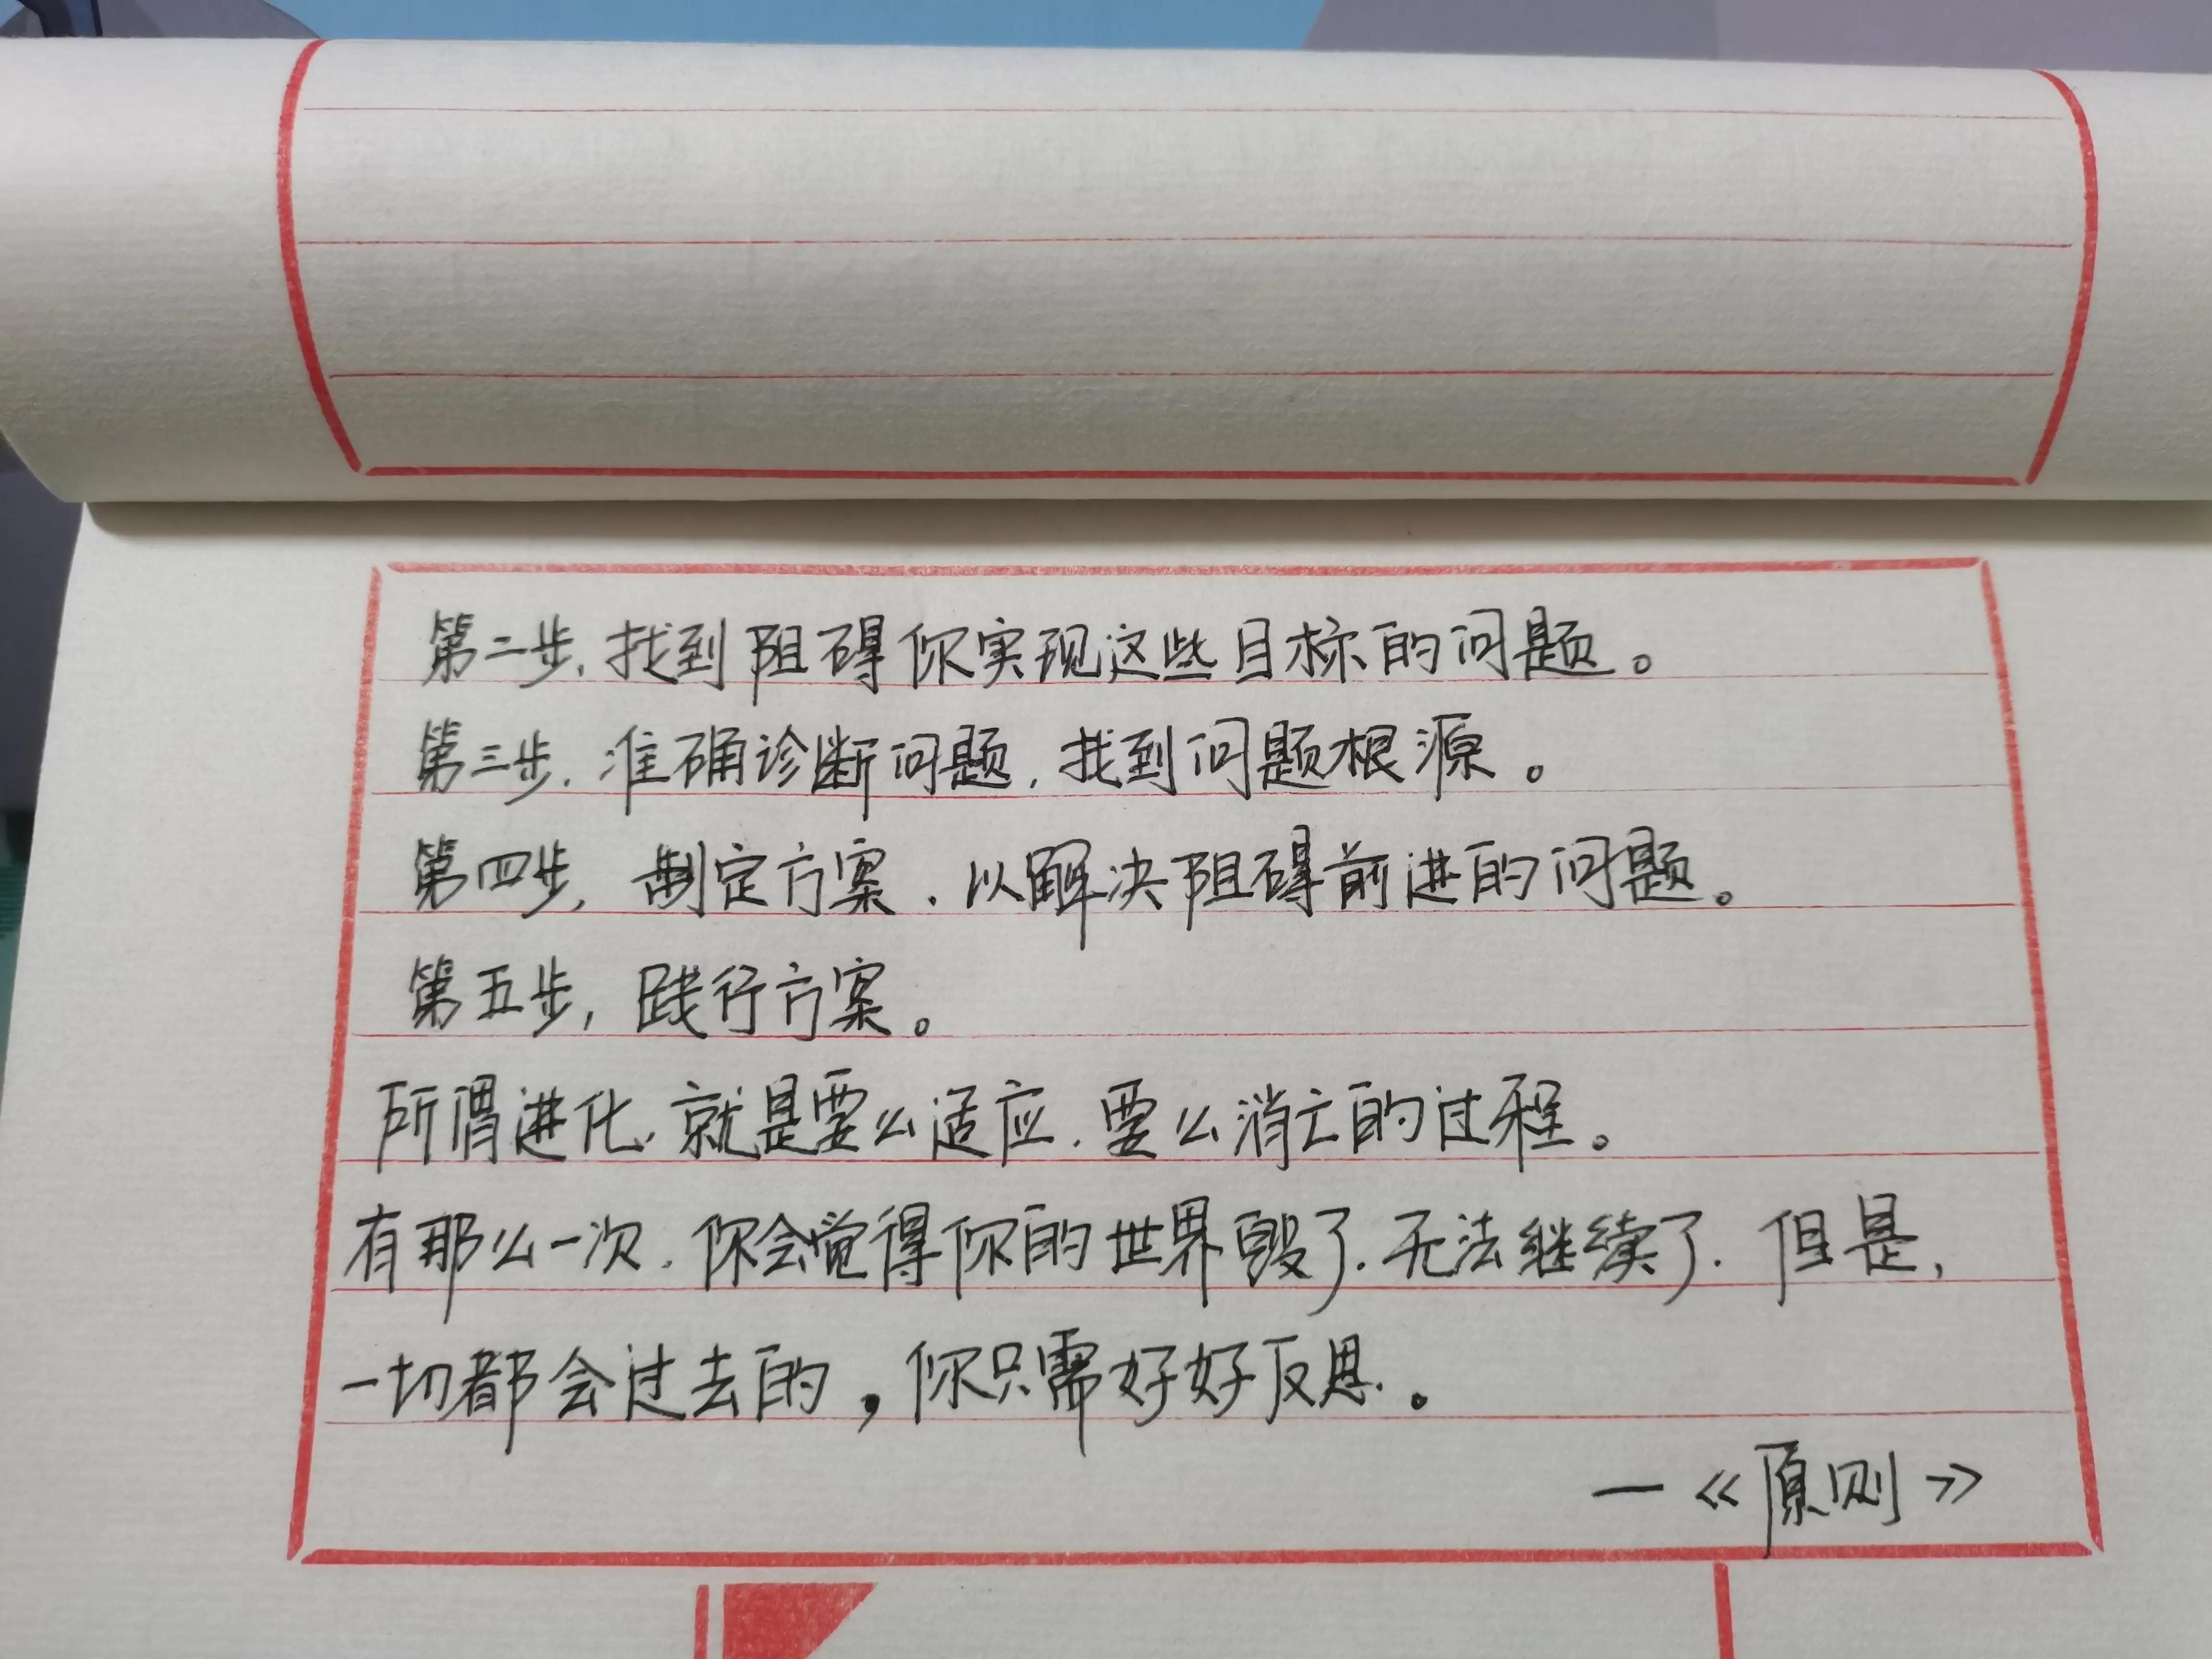 第二步,找到阻碍你实现这些目标的问题。
第三步,准确诊断问题,找到问题根源。
第四步,制定方案,以解决阻碍前进的问题。
第五步,践行方案。
所谓进化,就是要么适应,要么消亡的过程。
有那么一次,你会觉得你的世界毁了,无法继续了,但是,
一切都会过去的,你只需好好反思。
—《原则》